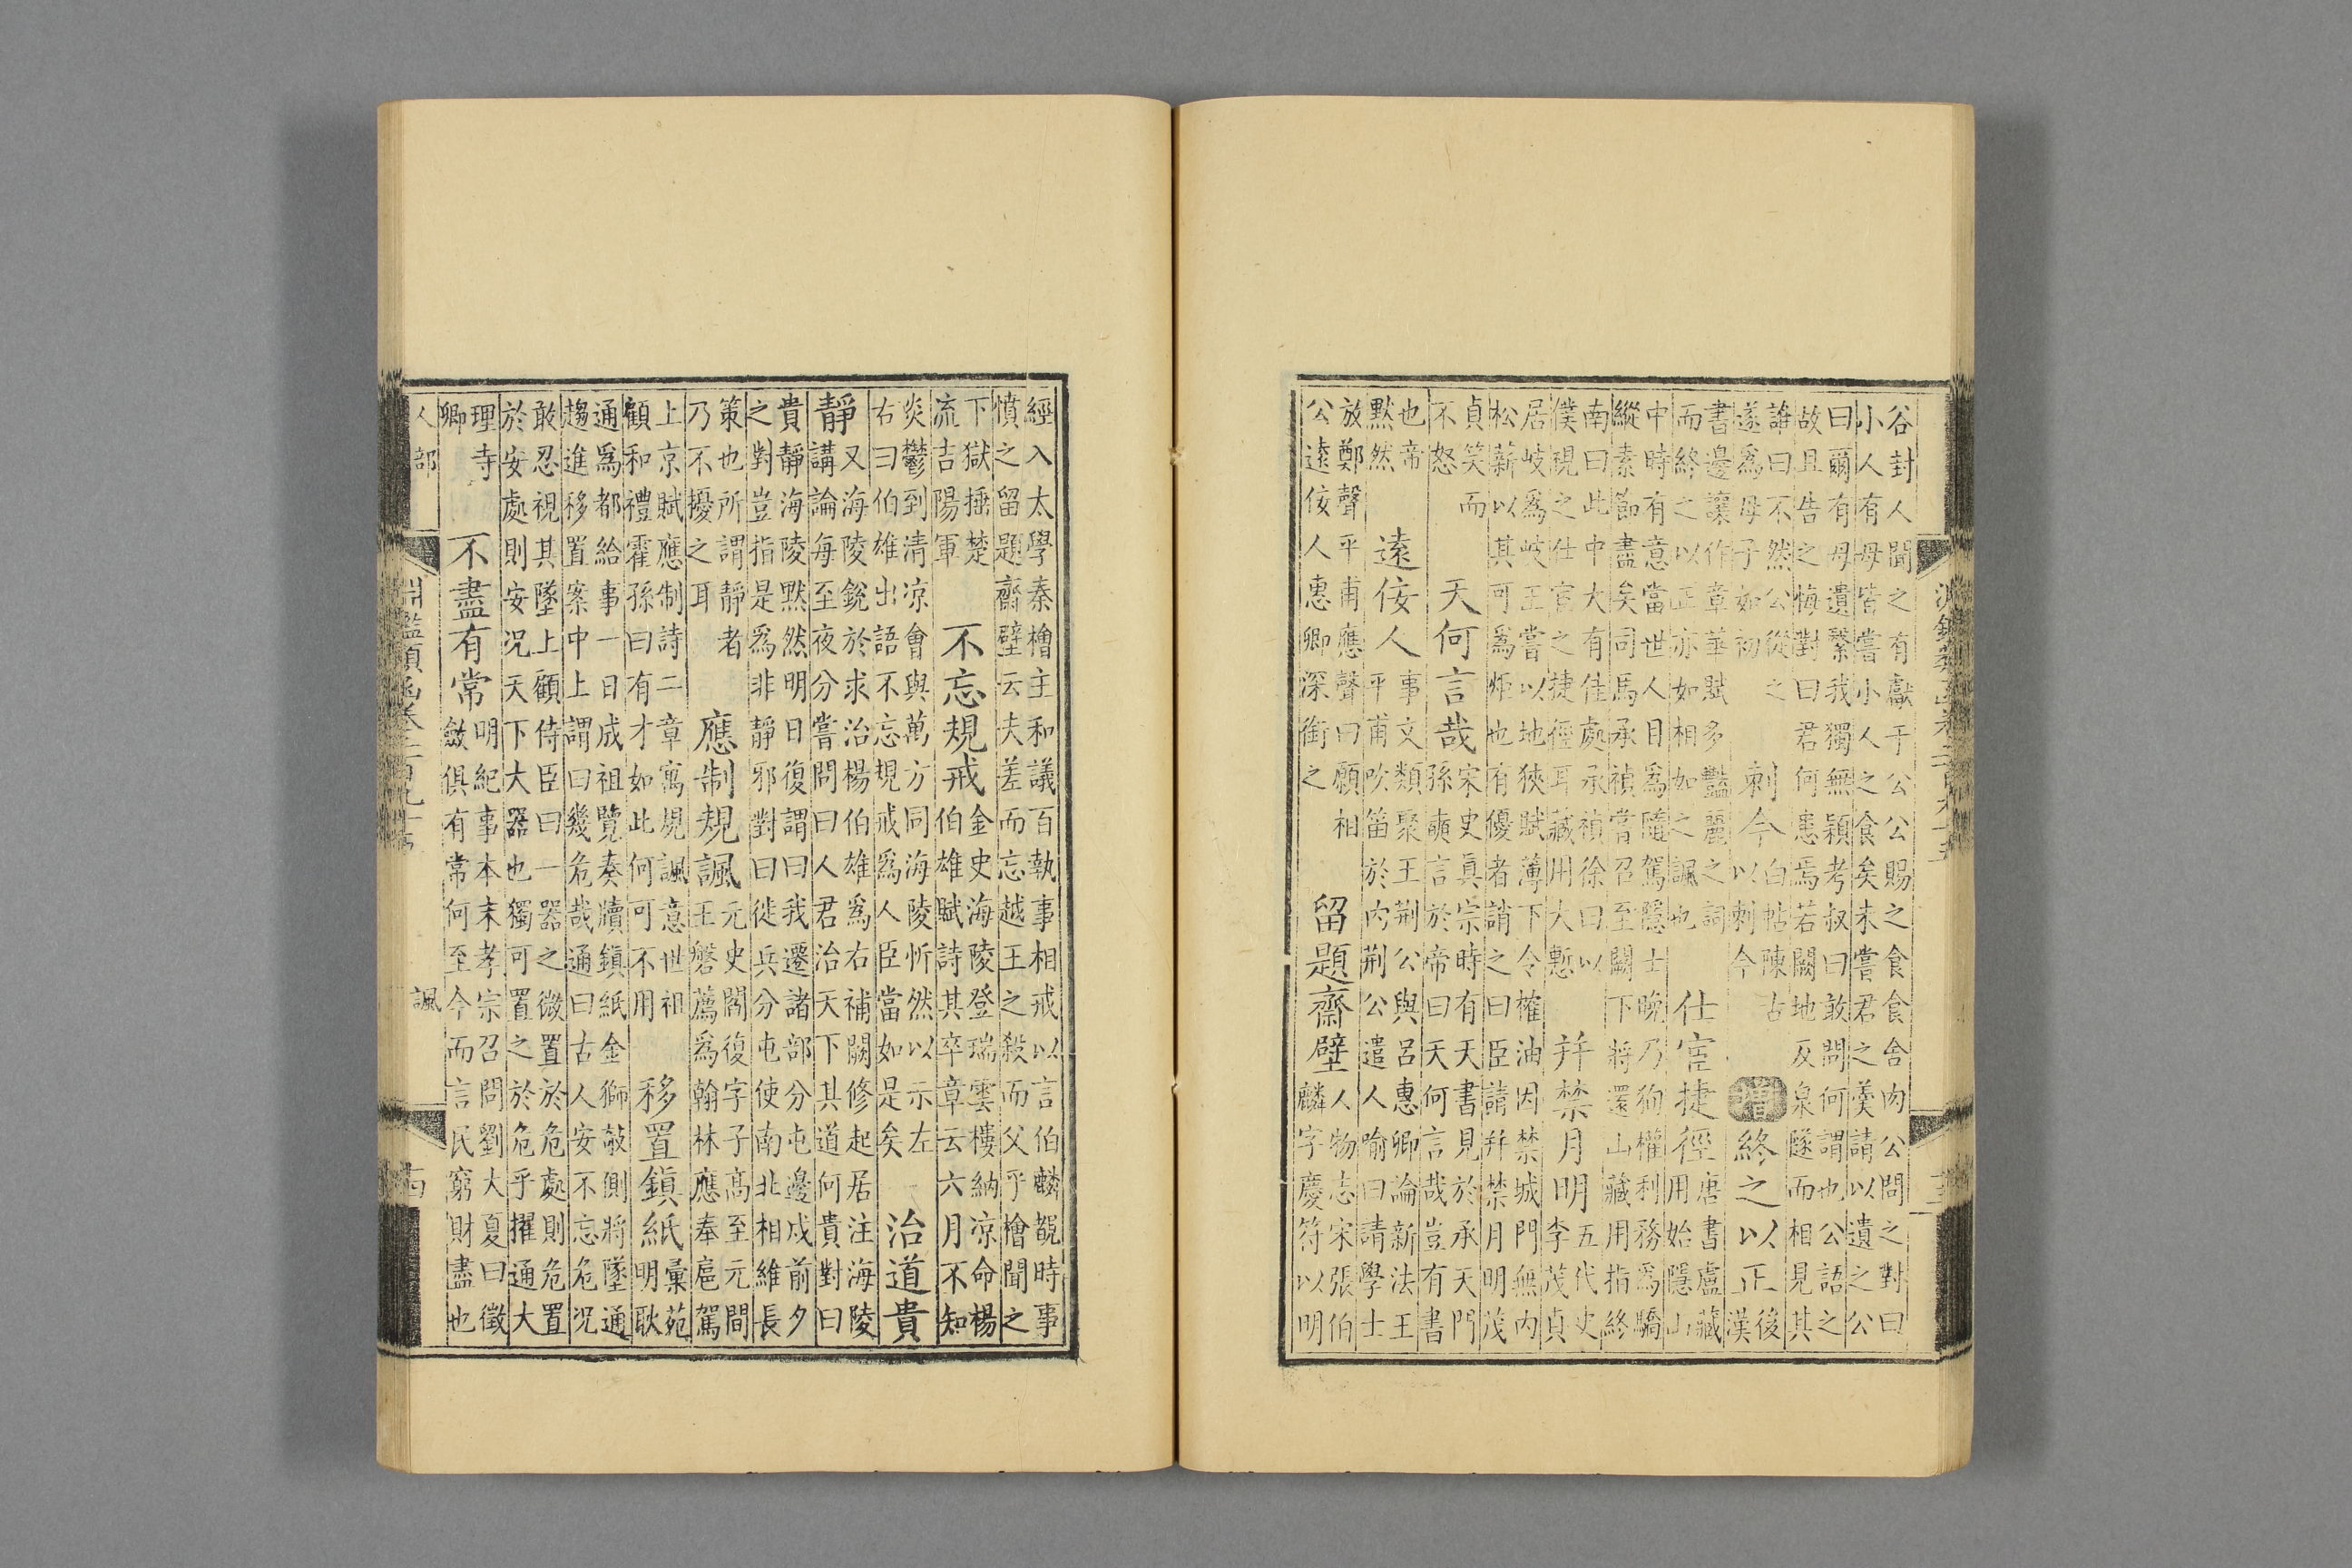 谷封人聞之有獻于公公賜之食食舍肉公問之對曰
小人有母皆嘗小人之食矣未嘗君之羹請以遺之公
曰爾有母遺繄我獨無穎考叔曰敢問何謂也公語之
故且告之悔對曰君何患焉若闕地及泉隧而相見其
誰曰不然公從之
遂爲母子如初
刺今
白帖陳古
以刺今
增
終之以正
後
漢
書邊讓作章華賦多豔麗之詞
而終之以正亦如相如之諷也
仕宦捷徑
唐書盧藏
用始隱山
中時有意當世人目爲隨駕隱士晚乃狥權利務爲驕
縱素節盡矣司馬承禎嘗召至闕下將還山藏用指終
南曰此中大有佳處承禎徐曰以
僕視之仕宦之捷徑耳藏用大慙
幷禁月明
五代史
李茂貞
居岐爲岐王嘗以地狹賦薄下令榷油因禁城門無內
松薪以其可爲炬也有優者誚之曰臣請幷禁月明茂
貞笑而
不怒
天何言哉
宋史眞宗時有天書見於承天門
孫奭言於帝曰天何言哉豈有書
也帝
默然
遠佞人
事文類聚王荆公與呂惠卿論新法王
平甫吹笛於內荆公遣人喻曰請學士
放鄭聲平甫應聲曰願相
公遠佞人惠卿深銜之
留題齋壁
人物志宋張伯
麟字慶符以明
經入太學秦檜主和議百執事相戒以言伯麟覩時事
憤之留題齋壁云夫差而忘越王之殺而父乎檜聞之
下獄捶楚
流吉陽軍
不忘規戒
金史海陵登瑞雲樓納凉命楊
伯雄賦詩其卒章云六月不知
炎鬱到清凉會與萬方同海陵忻然以示左
右曰伯雄出語不忘規戒爲人臣當如是矣
治道貴
靜
又海陵銳於求治楊伯雄爲右補闕修起居注海陵
講論每至夜分嘗問曰人君治天下其道何貴對曰
貴靜海陵默然明日復謂曰我遷諸部分屯邊戍前夕
之對豈指是爲非靜邪對曰徙兵分屯使南北相維長
策也所謂靜者
乃不擾之耳
應制規諷
元史閻復字子高至元間
王磐薦爲翰林應奉扈駕
上京賦應制詩二章寓規諷意世祖
顧和禮霍孫曰有才如此何可不用
移置鎭紙
彙苑
明耿
通爲都給事一日成祖覽奏牘鎭紙金獅敧側將墜通
趨進移置案中上謂曰幾危哉通曰古人安不忘危况
敢忍視其墜上顧侍臣曰一器之微置於危處則危置
於安處則安况天下大器也獨可置之於危乎擢通大
理寺
卿
不盡有常
明紀事本末孝宗召問劉大夏曰徵
斂俱有常何至今而言民窮財盡也
人部
諷
淵鑑類函卷二百九十五
十四